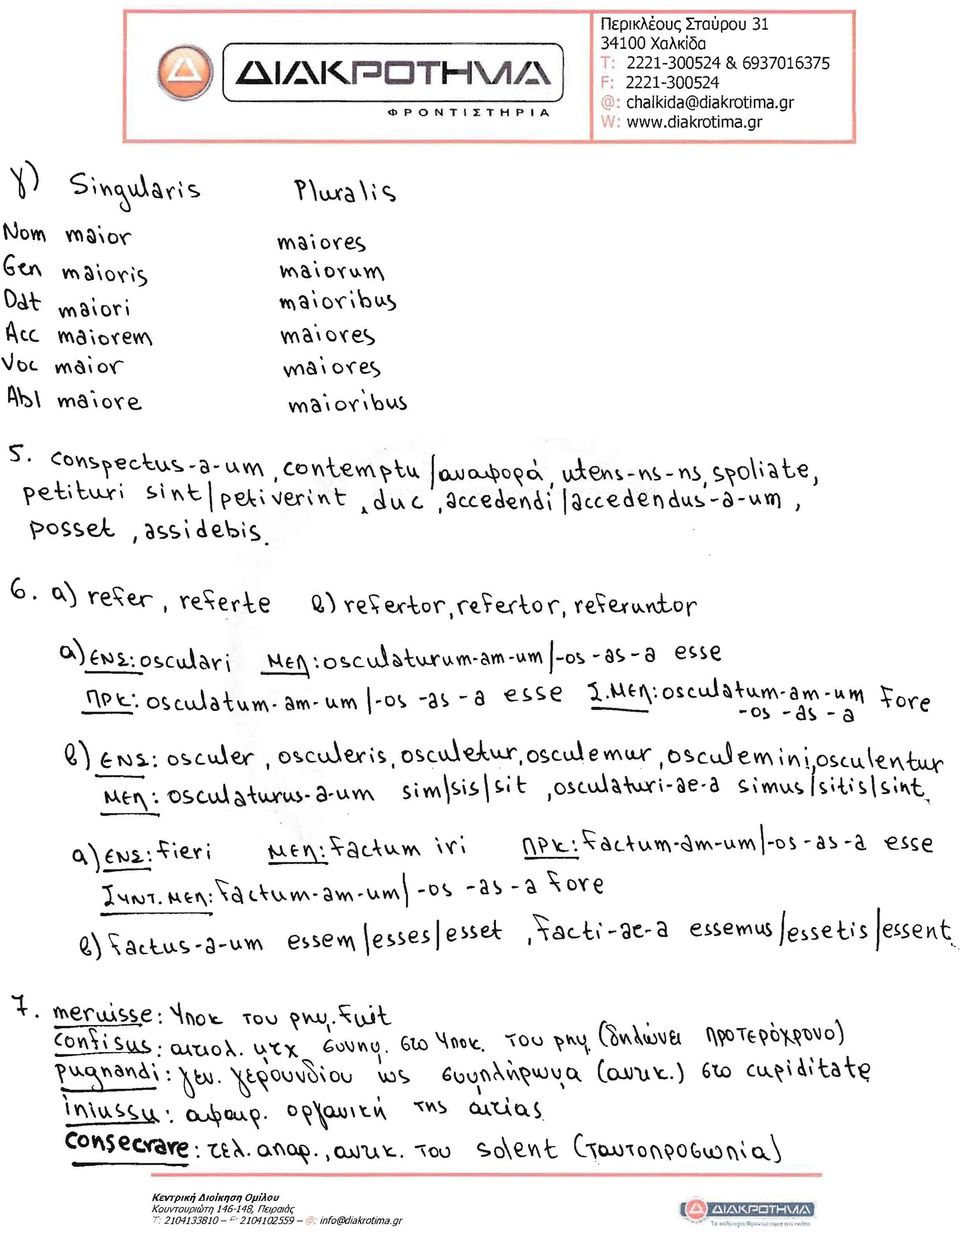 ΔΙΑΚΡΟΤΗΜΑ
ΦΡΟΝΤΙΣΤΗΡΙΑ
Περικλέους Σταύρου 31
34100 Χαλκίδα
T: 2221-300524 & 6937016375
F: 2221-300524
@: chalkida@diakrotima.gr
W: www.diakrotima.gr
γ) Singularis Pluralis
Nom maior maiores
Gen maioris maiorum
Dat maiori maioribus
Acc maiorem maiores
Voc maior maiores
Abl maiore maioribus
5. conspectus-a-um, contemptu / αναφορά, utens-ns-ns, spoliate,
petituri sint | petiverint, duc, accedendi | accedendus-a-um,
posset, assidebis.
6. α) refer, referte β) refertor, refertor, referuntor
α) ΕΝΣ: osculari ΜΕΛ: osculaturum-am-um | -os -as -a esse
ΠΡΚ: osculatum-am-um | -os -as -a esse Σ.ΜΕΛ: osculatum-am-um fore
-os -as -a
β) ΕΝΣ: osculer, osculeris, osculetur, osculemur, osculemini, osculentur
ΜΕΛ: osculaturus-a-um sim|sis|sit, osculaturi-ae-a simus|sitis|sint.
α) ΕΝΣ: fieri ΜΕΛ: factum iri ΠΡΚ: factum-am-um | -os -as -a esse
Συντ. ΜΕΛ: factum-am-um | -os -as -a fore
β) factus-a-um essem | esses | esset, facti-ae-a essemus | essetis | essent.
7. meruisse: Υποκ του ρημ. fuit
confisus: αιτιολ. μτχ συνημ. στο Υποκ. του ρημ (δηλώνει προτερόχρονο)
pugnandi: γεν. γερουνδίου ως συμπλήρωμα (αντικ.) στο cupiditate
iniussu: αφαιρ. οργανική της αιτίας
consecrare: τελ. απαρ., αντικ. του solent (ταυτοπροσωπία)
Κεντρική Διοίκηση Ομίλου
Κουντουριώτη 146-148, Πειραιάς
T: 2104133810 – F: 2104102559 – @: info@diakrotima.gr
ΔΙΑΚΡΟΤΗΜΑ